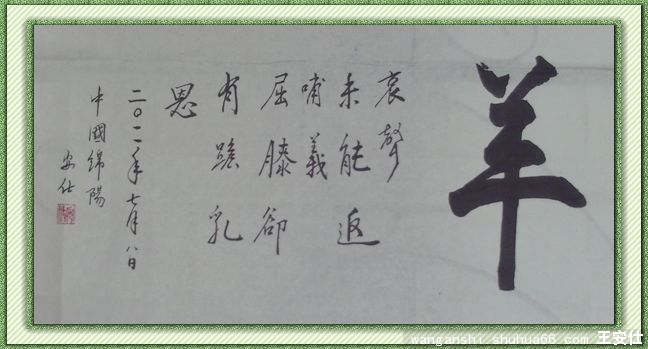 羊
哀聲
未能返
哺義
屈膝卻
有跪乳
恩
二〇一一年七月八日
中國綿陽
安仕
wanganshi.shuhua66.com 王安仕